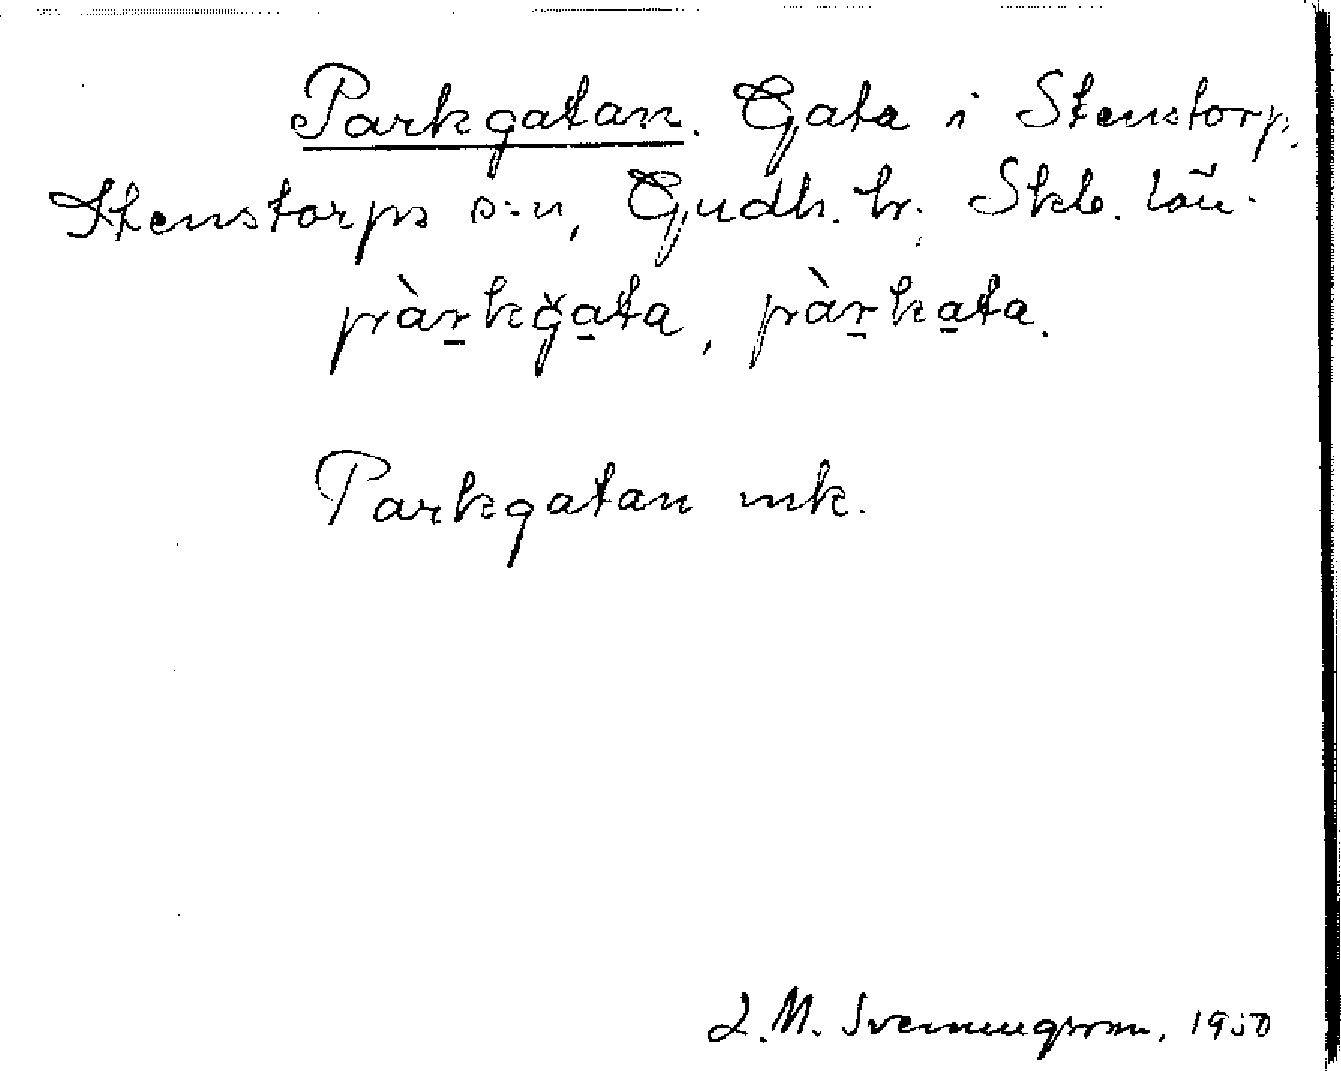 Parkgatan. Gata i Stenstorp,
Stenstorps s:n, Gudh. hr. Skb. län.
pàr̲kğa̲ta, pàr̲ka̲ta.
Parkgatan mk.
L.M. Svenningsson, 1950